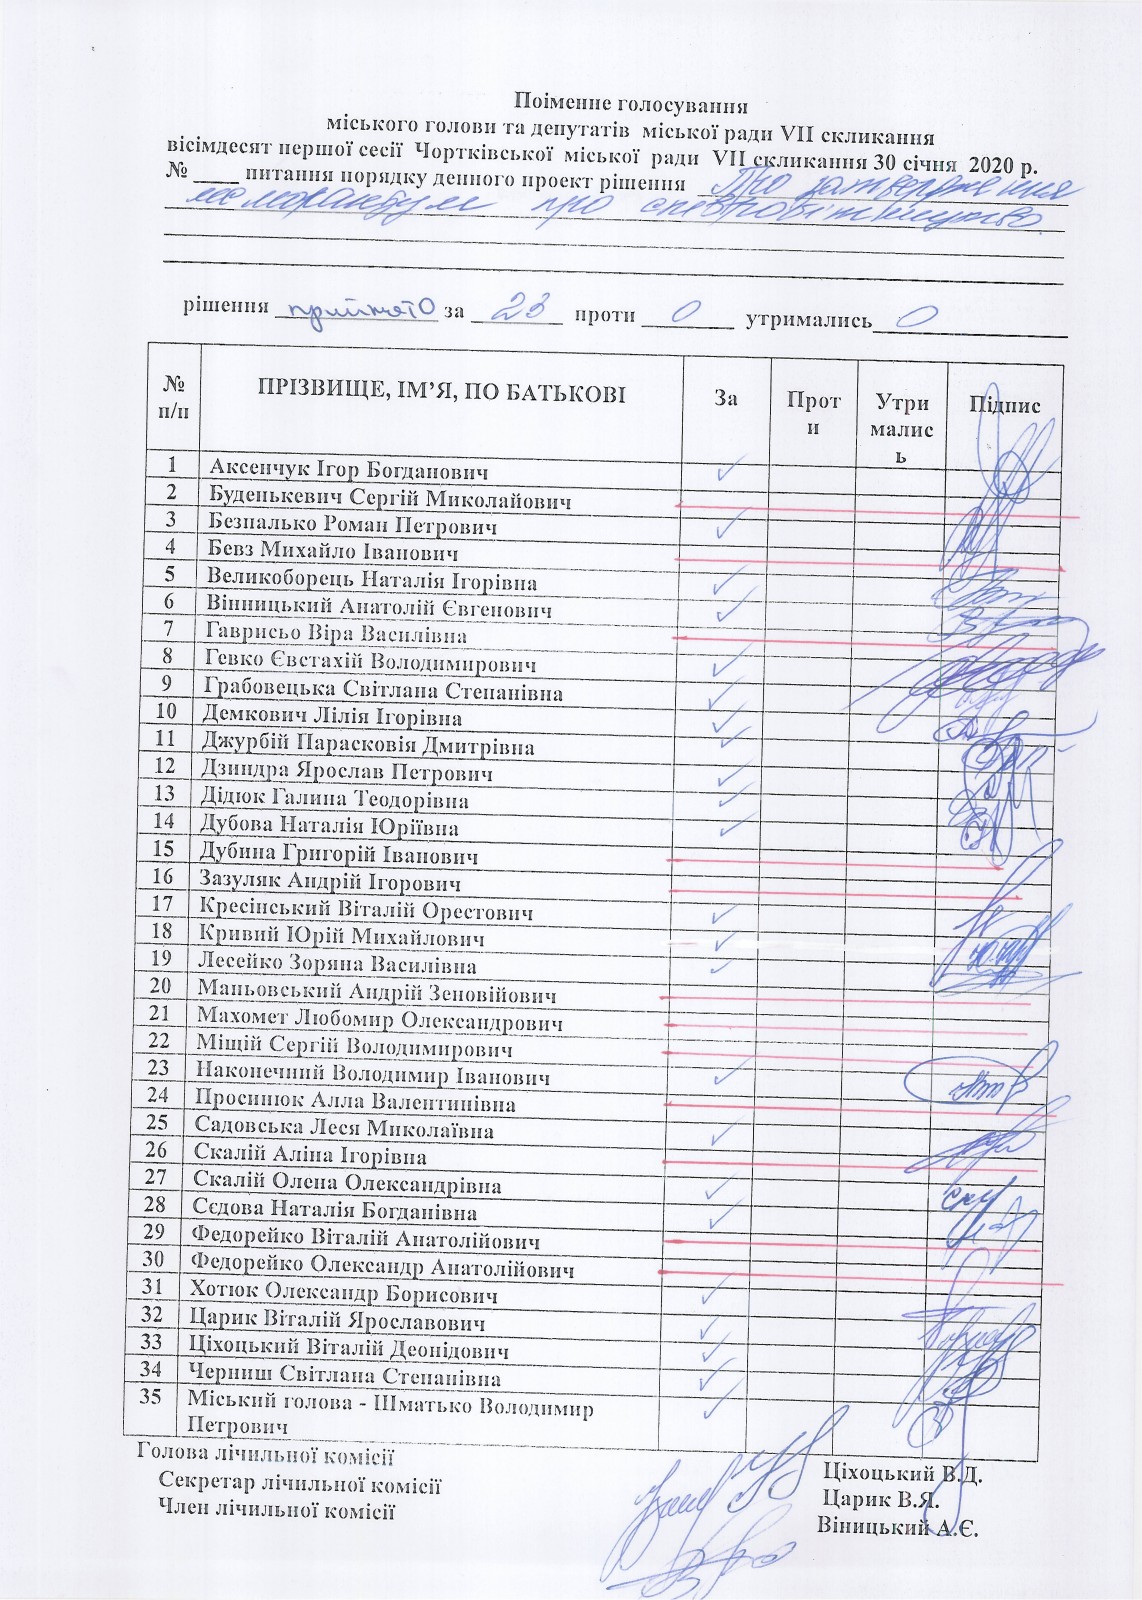 Поіменне голосування
міського голови та депутатів міської ради VII скликання
вісімдесят першої сесії Чортківської міської ради VII скликання 30 січня 2020 р.
№ ____ питання порядку денного проект рішення Про затвердження
меморандуму про співробітництво
рішення прийнято за 23 проти 0 утримались 0
№ п/п ПРІЗВИЩЕ, ІМ’Я, ПО БАТЬКОВІ За Проти Утримались Підпис
1 Аксенчук Ігор Богданович ✓
2 Буденькевич Сергій Миколайович
3 Безпалько Роман Петрович ✓
4 Бевз Михайло Іванович
5 Великоборець Наталія Ігорівна ✓
6 Вінницький Анатолій Євгенович ✓
7 Гаврисьо Віра Василівна
8 Гевко Євстахій Володимирович ✓
9 Грабовецька Світлана Степанівна ✓
10 Демкович Лілія Ігорівна ✓
11 Джурбій Парасковія Дмитрівна ✓
12 Дзиндра Ярослав Петрович ✓
13 Дідюк Галина Теодорівна ✓
14 Дубова Наталія Юріївна ✓
15 Дубина Григорій Іванович
16 Зазуляк Андрій Ігорович
17 Кресінський Віталій Орестович ✓
18 Кривий Юрій Михайлович ✓
19 Лесейко Зоряна Василівна ✓
20 Маньовський Андрій Зеновійович
21 Махомет Любомир Олександрович
22 Міщій Сергій Володимирович
23 Наконечний Володимир Іванович ✓
24 Просинюк Алла Валентинівна
25 Садовська Леся Миколаївна ✓
26 Скалій Аліна Ігорівна
27 Скалій Олена Олександрівна ✓
28 Сєдова Наталія Богданівна ✓
29 Федорейко Віталій Анатолійович
30 Федорейко Олександр Анатолійович
31 Хотюк Олександр Борисович ✓
32 Царик Віталій Ярославович ✓
33 Ціхоцький Віталій Деонідович ✓
34 Черниш Світлана Степанівна ✓
35 Міський голова - Шматько Володимир
Петрович ✓
Голова лічильної комісії Ціхоцький В.Д.
Секретар лічильної комісії Царик В.Я.
Член лічильної комісії Віницький А.Є.